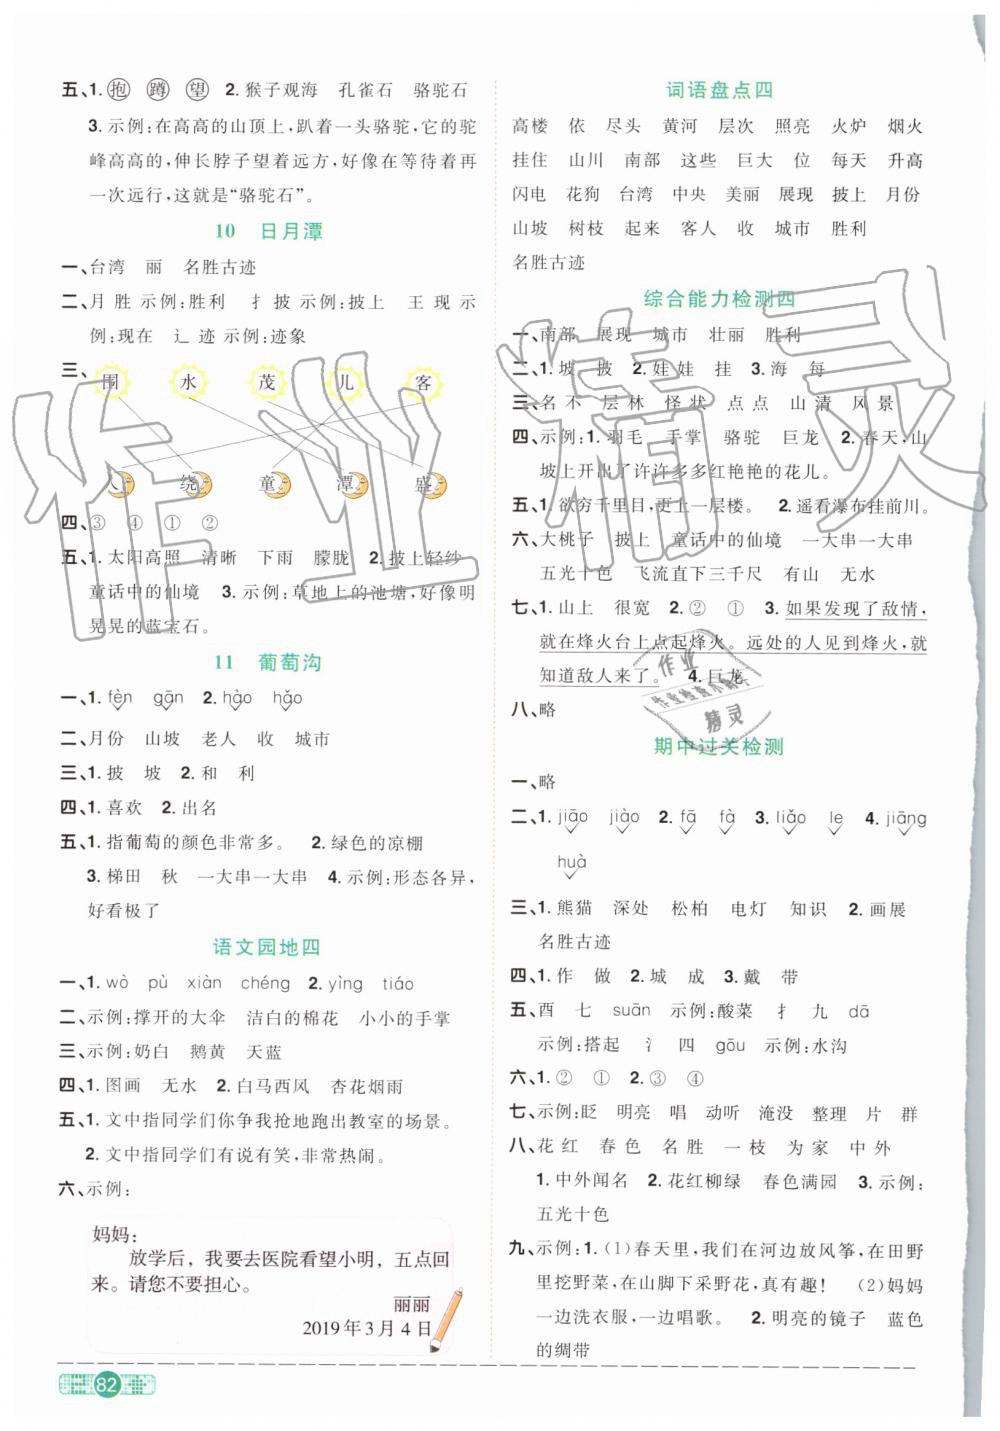 五、1. 抱 蹲 望 2. 猴子观海 孔雀石 骆驼石
3. 示例:在高高的山顶上,趴着一头骆驼,它的驼
峰高高的,伸长脖子望着远方,好像在等待着再
一次远行,这就是“骆驼石”。
10 日月潭
一、台湾 丽 名胜古迹
二、月 胜 示例:胜利 扌 披 示例:披上 王 现 示
例:现在 辶 迹 示例:迹象
三、围 水 茂 儿 客
人 绕 童 潭 盛
四、③ ④ ① ②
五、1. 太阳高照 清晰 下雨 朦胧 2. 披上轻纱
童话中的仙境 3. 示例:草地上的池塘,好像明
晃晃的蓝宝石。
11 葡萄沟
一、1. fèn gān 2. hào hǎo
二、月份 山坡 老人 收 城市
三、1. 披 坡 2. 和 利
四、1. 喜欢 2. 出名
五、1. 指葡萄的颜色非常多。 2. 绿色的凉棚
3. 梯田 秋 一大串一大串 4. 示例:形态各异,
好看极了
语文园地四
一、1. wò pù xiàn chéng 2. yìng tiáo
二、示例:撑开的大伞 洁白的棉花 小小的手掌
三、示例:奶白 鹅黄 天蓝
四、1. 图画 无水 2. 白马西风 杏花烟雨
五、1. 文中指同学们你争我抢地跑出教室的场景。
2. 文中指同学们有说有笑,非常热闹。
六、示例:
妈妈:
放学后，我要去医院看望小明，五点回
来。请您不要担心。
丽丽
2019年3月4日
82
词语盘点四
高楼 依 尽头 黄河 层次 照亮 火炉 烟火
挂住 山川 南部 这些 巨大 位 每天 升高
闪电 花狗 台湾 中央 美丽 展现 披上 月份
山坡 树枝 起来 客人 收 城市 胜利
名胜古迹
综合能力检测四
一、南部 展现 城市 壮丽 胜利
二、1. 坡 披 2. 娃娃 挂 3. 海 每
三、名 不 层林 怪状 点点 山清 风景
四、示例:1. 羽毛 手掌 骆驼 巨龙 2. 春天,山
坡上开出了许许多多红艳艳的花儿。
五、1. 欲穷千里目,更上一层楼。 2. 遥看瀑布挂前川。
六、大桃子 披上 童话中的仙境 一大串一大串
五光十色 飞流直下三千尺 有山 无水
七、1. 山上 很宽 2. ② ① 3. 如果发现了敌情,
就在烽火台上点起烽火。远处的人见到烽火,就
知道敌人来了。 4. 巨龙
八、略
期中过关检测
一、略
二、1. jiāo jiào 2. fā fà 3. liǎo le 4. jiāng
huà
三、1. 熊猫 深处 松柏 电灯 知识 2. 画展
名胜古迹
四、1. 作 做 2. 城 成 3. 戴 带
五、酉 七 suān 示例:酸菜 扌 九 dā
示例:搭起 氵 四 gōu 示例:水沟
六、1. ② ① 2. ③ ④
七、示例:眨 明亮 唱 动听 淹没 整理 片 群
八、花红 春色 名胜 一枝 为家 中外
1. 中外闻名 2. 花红柳绿 春色满园 3. 示例:
五光十色
九、示例:1. (1)春天里,我们在河边放风筝,在田野
里挖野菜,在山脚下采野花,真有趣! (2)妈妈
一边洗衣服,一边唱歌。 2. 明亮的镜子 蓝色
的绸带
作业精灵